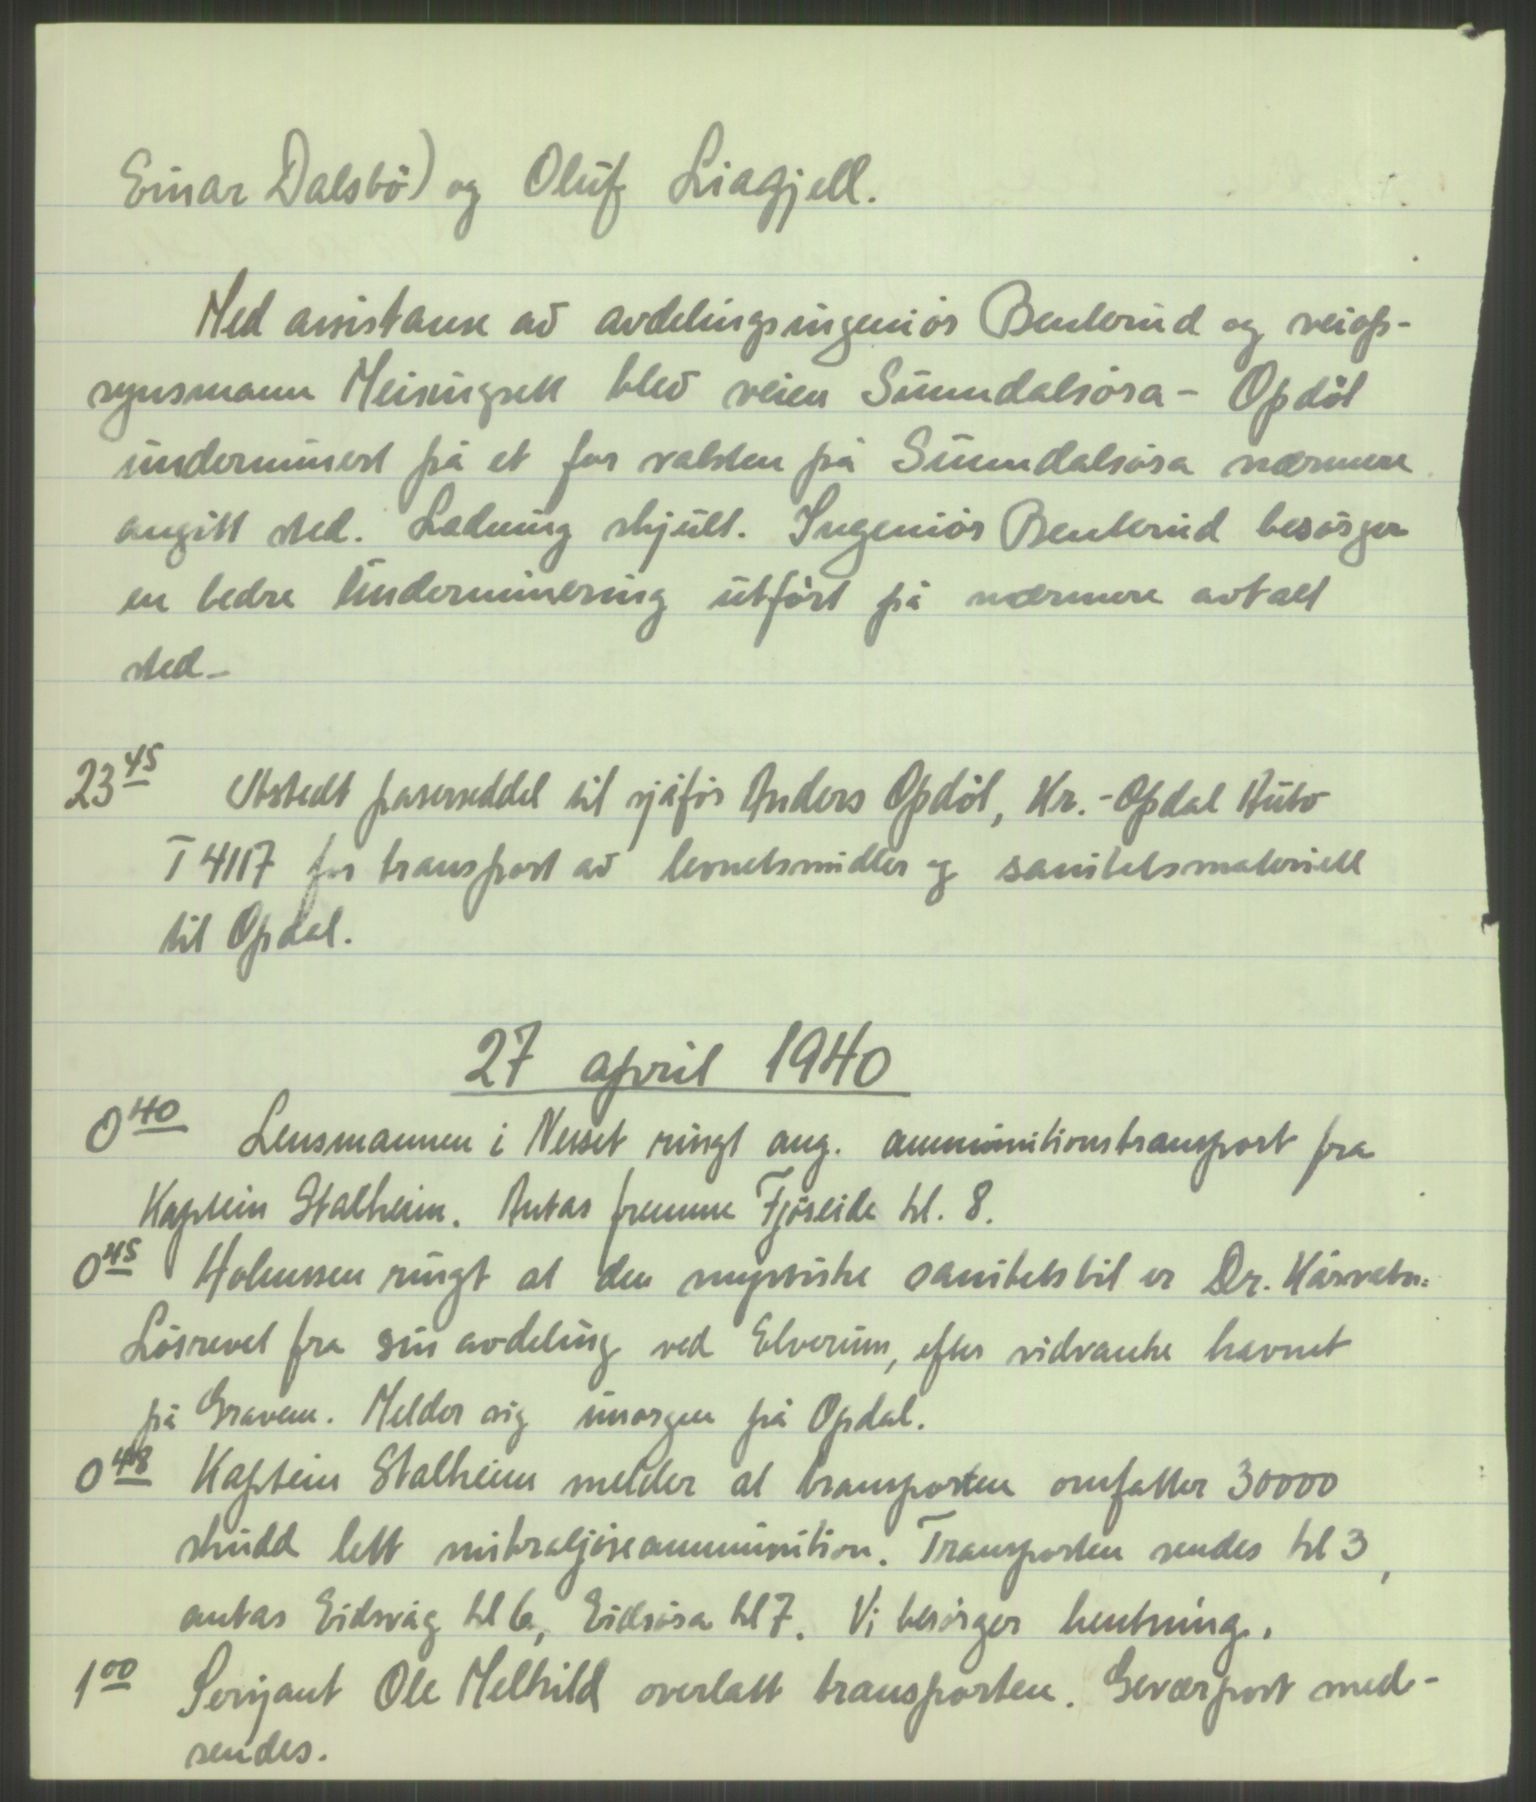 Einar Dalsbö) og Oluf Liagjell.
Med assistanse av avdelingsingeniör Benterud og veiop-
synsmann Meisingset blev veien Sunndalsöra - Opdöl
underminert på et for vakten på Sunndalsöra nærmere
angitt sted. Ladning skjult. Ingeniör Benterud besörger
en bedre underminering utfört på nærmere avtalt
sted -
23 45 Utstedt paserseddel til sjåför Anders Opdöl, Kr.-Opdal Auto
T 4117 for transport av levnetsmidler og sanitetsmateriell
til Opdal.
27 april 1940
0 40 Lensmannen i Nesset ringt ang. ammunitionstransport fra
Kaptein Stalheim. Antas fremme Fjöseide kl. 8.
0 45 Holmssen ringt at den mystiske sanitetsbil er Dr. Kårvatn.
Lösrevet fra sin avdeling ved Elverum, efter vidvanke havnet
på Gravem. Melder sig imorgen på Opdal.
0 48 Kaptein Stalheim melder at transporten omfatter 30000
skudd lett mitraljöseammunition. Transporten sendes kl 3,
antas Eidsvåg kl 6, Eidsöra kl 7. Vi besörger hentning.
1 00 Serijant Ole Melkild overlatt transporten. Geværport med-
sendes.